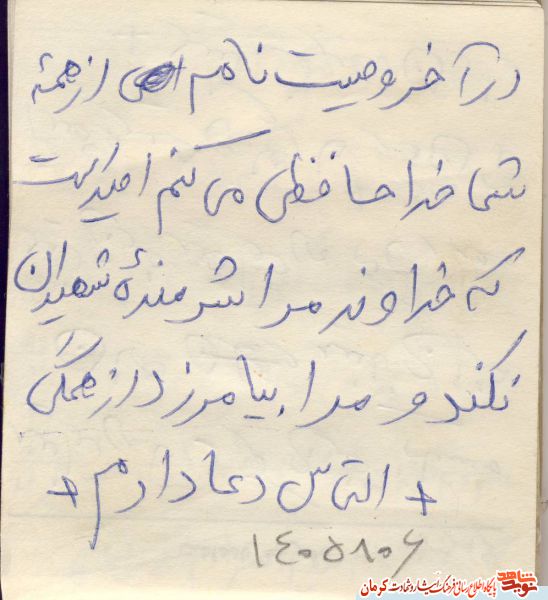 در آخر وصیت نامم از همهٔ
شما خدا حافظی می کنم امید است
که خداوند مرا شرمندهٔ شهیدان
نکند و مرا بیامرزد از همگی
+ التماس دعا دارم +
۱۴۰۵۸۰۶
نوید شاهد
پایگاه اطلاع رسانی فرهنگ ایثار و شهادت کرمان